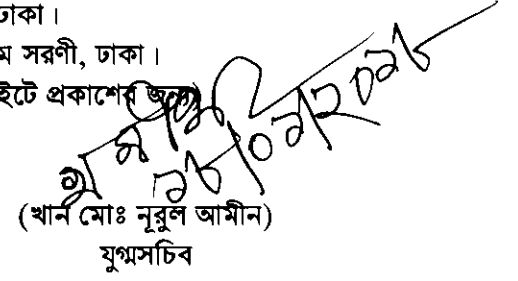 ঢাকা।
ম সরণী, ঢাকা।
ইটে প্রকাশের জন্য)
(খান মোঃ নূরুল আমীন)
যুগ্মসচিব